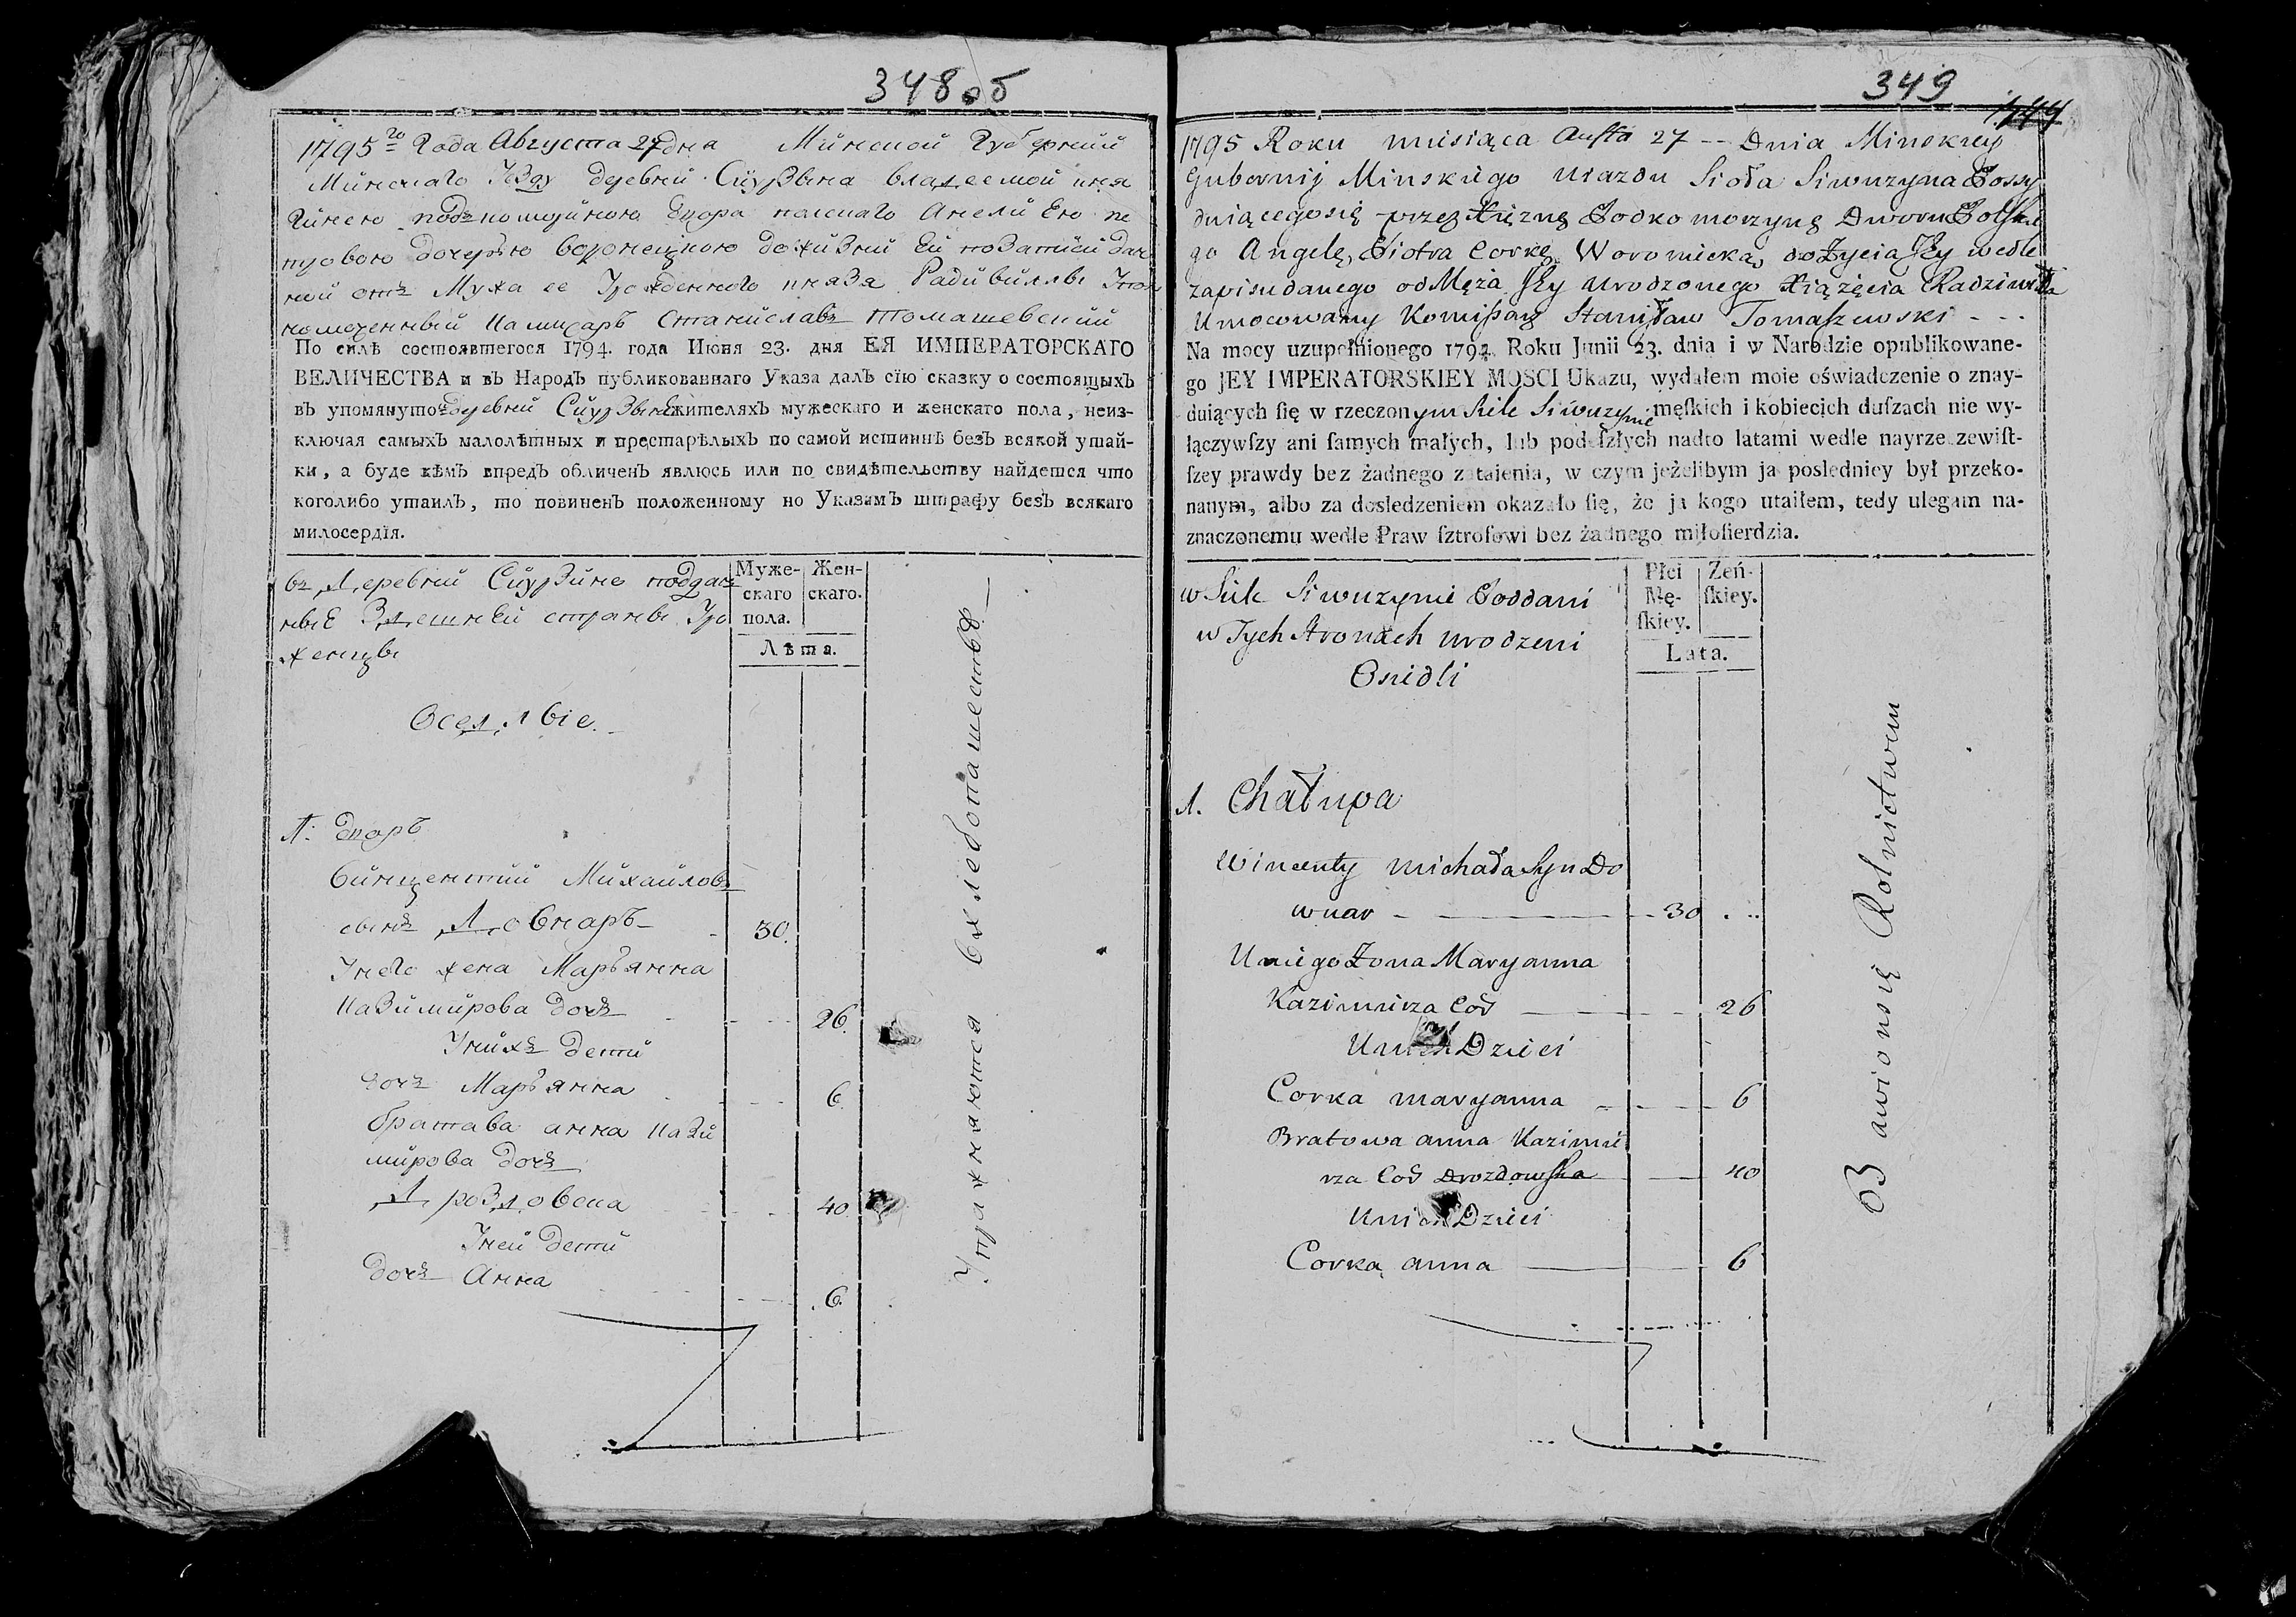 348 об
1795го Года Августа 27 дня Минской Губернии
Минскаго уезду деревни владеемой кня
гинею подкоморийною двора полскаго Анелй
дочерью доживотй Ей по записй дан
ной отъ Мужа ее Урожденного князя Радивиллы упол
номоченный Камисаръ Станиславъ Томашевский
По силѣ состоявшегося 1794. года Июня 23. дня ЕЯ ИМПЕРАТОРСКАГО
ВЕЛИЧЕСТВА и въ НародЪ публикованнаго Указа далЪ сїю сказку о состоящыхЪ
въ упомянутой деревнй жителяхЪ мужескаго и женскаго пола, неиз-
ключая самыхЪ малолѣтных и престарѣлыхЪ по самой истиннѣ безЪ всякой утай-
ки, а буде кѣмЪ впредЪ обличенЪ явлюсь или по свидѣтельству найдется что
коголибо утаилЪ, то повиненЪ положенному по УказамЪ штрафу безЪ всякаго
милосердїя.
въ Деревнй поддан
ные Здешней страны Уро
женцы
Муже-
скаго
пола.
Жен-
скаго.
Лѣта.
Оседлые.
1: Дворъ
Винцентий Михайловъ
сынъ Довнаръ 30.
У него жена Марьянна
Казимирова дочь 26.
У нихъ дети
дочь Марьянна 6
братава анна Кази
мирова дочь
Дроздовска 40
У ней дети
дочь Анна 6.
Упражняются в хлебопашестве
349
1795 Roku miesiąca Augsta 27 -- Dnia Minskiey
Gubernij Minskiego Uiazdu Sioła Siwuzyna Possy
duiącego się przez Xięznę Podkomorzynę Dworu Polskie
go Angelę, Piotra Corkę Woronicką, do Życia Jey wedle
zapisu danego od Męża Jey Urodzonego Xiążęcia Radziwiłła
Umocowany Komißarz Stanisław Tomaszewski - - -
Na mocy uzupełnionego 1794. Roku Junii 23. dnia i w Narodzie opublikowane-
go JEY IMPERATORSKIEY MOSCI Ukazu, wydałem moie oświadczenie o znay-
duiących ſię w rzeczonym Siele Siwuzynie męſkich i kobiecich duſzach nie wy-
łączywſzy ani ſamych małych, lub podeſzłych nadto latami wedle nayrzeczewiſt-
ſzey prawdy bez żadnego zataienia, w czym jeżelibym ja poslednicy był przeko-
nanym, albo za dosledzeniem okazało ſię, że ja kogo utaiłem, tedy ulegam na-
znaczonemu wedle Praw ſztrofowi bez żadnego miłoſierdzia.
w Siele Siwuzynie Poddani
w Tych Stronach urodzeni
Osiedli
Płci
Mę-
ſkiey.
Zeń-
ſkiey.
Lata.
1. Chałupa
Wincenty Michała Syn Do
wnar 30
U niego Żona Maryanna
Kazimierza Cor 26
U nich Dzieci
Corka maryanna 6
Bratowa anna Kazimie
rza Cor Drozdowska 40
U nich Dzieci
Corka anna 6
Bawion się Rolnictwem